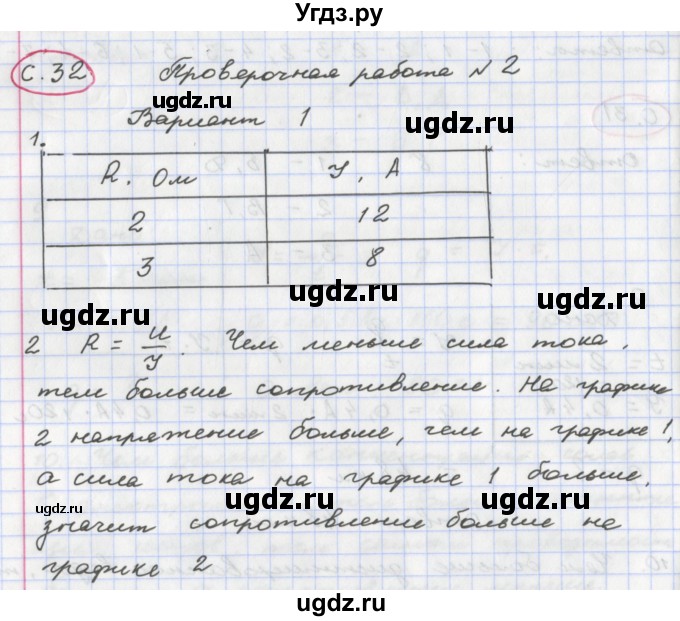 Угдз.ру
с. 32 Проверочная работа №2
ugdz.ru ugdz.ru
Вариант 1
1.
R, Ом У, А
2 12
3 8
ugdz.ru ugdz.ru
2 R = U/У. Чем меньше сила тока,
тем больше сопротивление. На графике
2 напряжение больше, чем на графике 1,
ugdz.ru
а сила тока на графике 1 больше,
ugdz.ru ugdz.ru
значит сопротивление больше на
графике 2
ugdz.ru
ugdz.ru